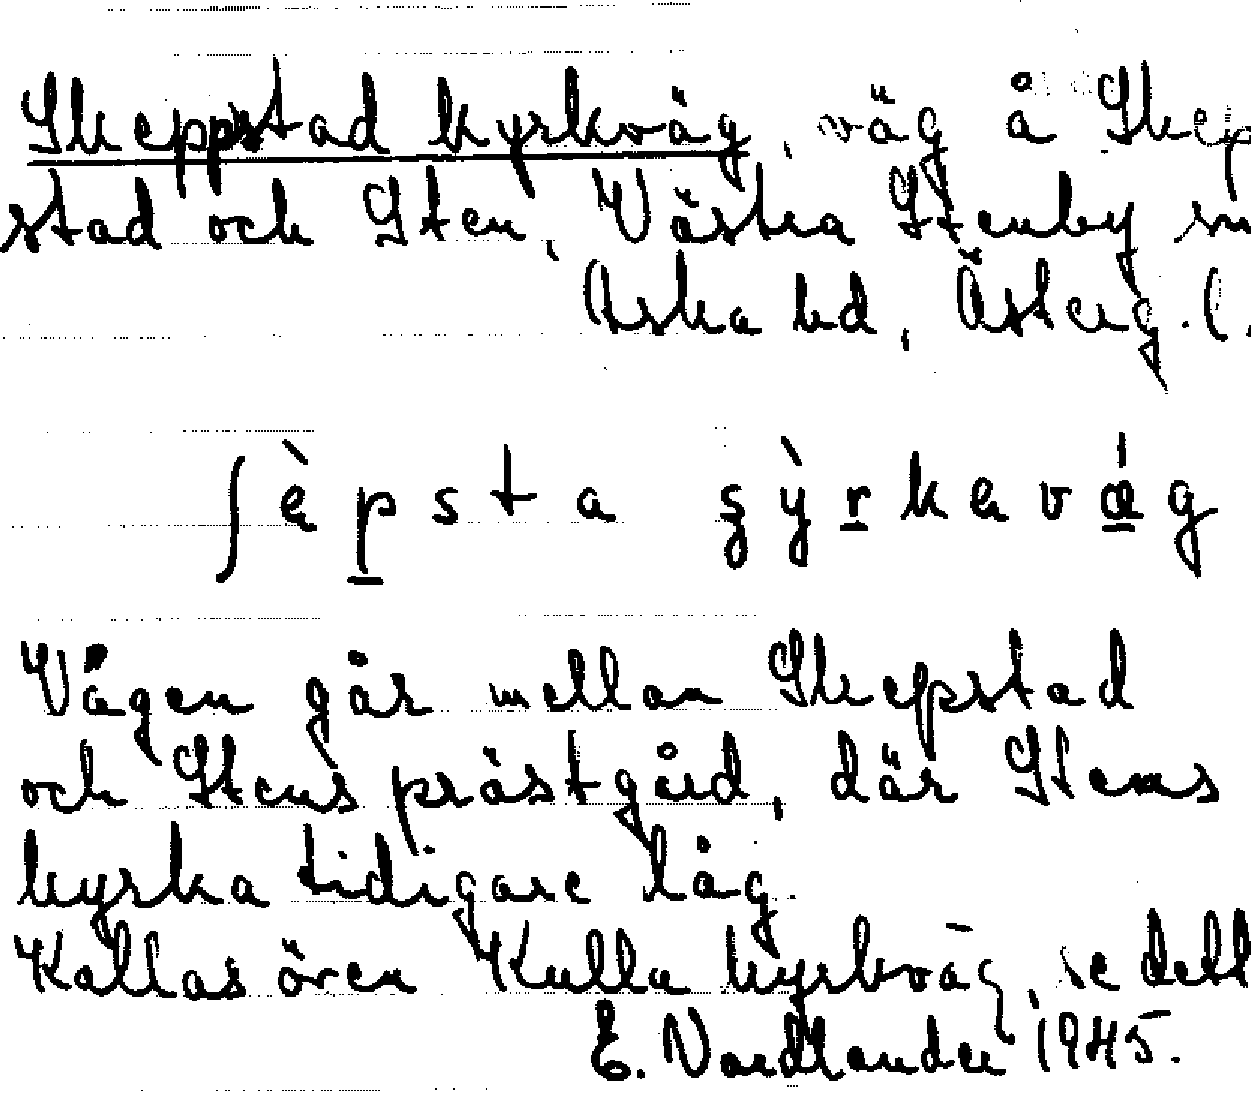 Skeppstad kyrkväg, väg å Skep
stad och Sten, Västra Stenby sn
Aska hd, Österg. l.
ʃèpsta çỳrkavǽg
Vägen går mellan Skepstad
och Stens prästgård, där Stens
kyrka tidigare låg.
Kallas även Kulla kyrkväg, se detta
E. Nordlander 1945.